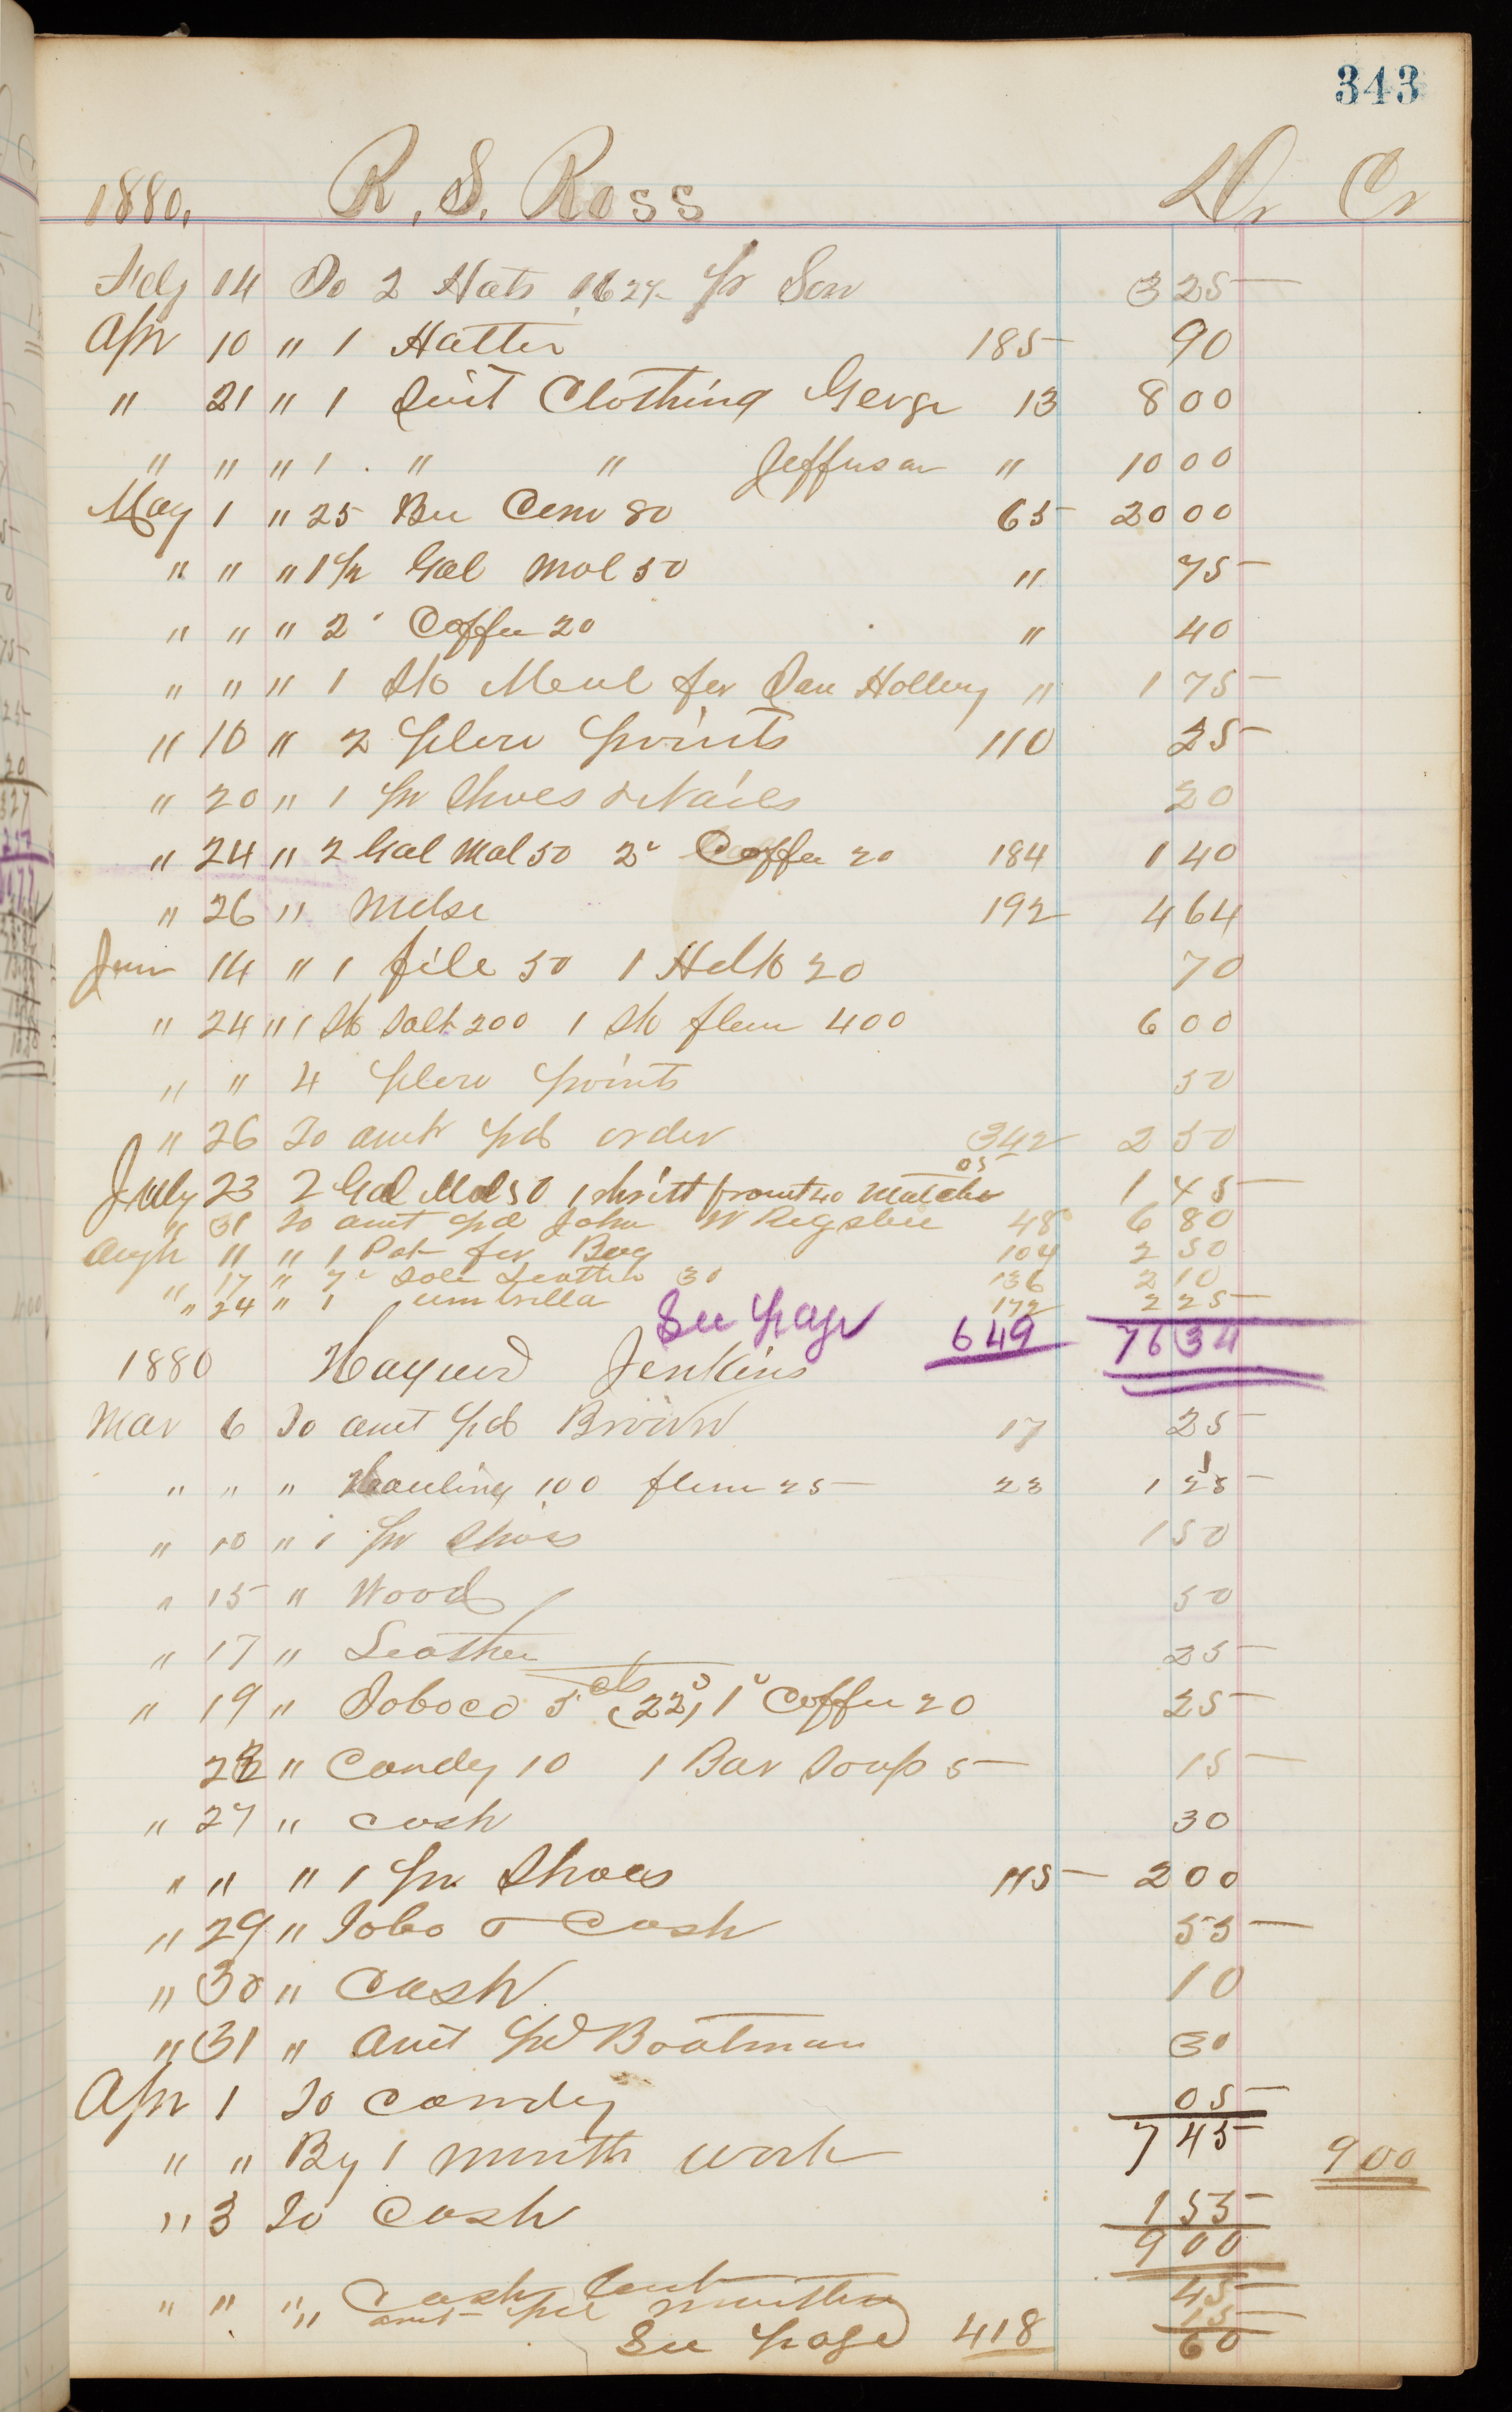 343
1880. R. S. Ross Dr Cr
Feby 14 To 2 Hats pr Son 3 25
Apr 10 " 1 Halter 185 90
" 21 " 1 Suit Clothing George 13 8 00
" " " 1 " " Jefferson " 10 00
May 1 " 25 Bu Corn 80 65 20 00
" " " 1 1/2 Gal Mol 50 " 75
" " " 2 " Coffee 20 " 40
" " " 1 Sk Meal for Dan Holleny " 1 75
" 10 " 2 plow points 110 25
" 20 " 1 pr Shoes & Nails 20
" 24 " 2 Gal Mol 50 2 " Coffee 20 184 1 40
" 26 " Mdse 192 4 64
Jun 14 " 1 file 50 1 Hdk 20 70
" 24 " 1 Sk Salt 200 1 Sk flour 400 6 00
" " 4 plow points 50
" 26 To amt pd order 342 2 50
July 23 2 Gal Mol 50 1 shirtt front 40 Matches 05 1 45
" 31 To amt pd John W Rigsbee 48 6 80
Augt 11 " 1 Pat for Bug 104 2 50
" 17 " 7 " Sole Leather 30 136 2 10
" 24 " 1 umbrilla 172 2 25
See page 649 76 34
1880 Haywood Jenkins
Mar 6 To amt pd Brown 17 25
" " " Hauling 100 flour 25 23 1 25
" 10 " 1 pr Shoes 1 50
" 15 " Wood 50
" 17 " Leather 25
" 19 " Tobaco 5 cts (22) 1 " Coffee 20 25
22 " Candy 10 1 Bar Soap 5 15
" 27 " cash 30
" " " 1 pr Shoes 115 2 00
" 29 " Tobo & Cash 55
" 30 " Cash 10
" 31 " Amt pd Boatman 30
Apr 1 To Candy 05
7 45
" " By 1 month work 9 00
" 3 To Cash 1 55
9 00
" " " Cash 45
" amt pd 15
See page 418 60